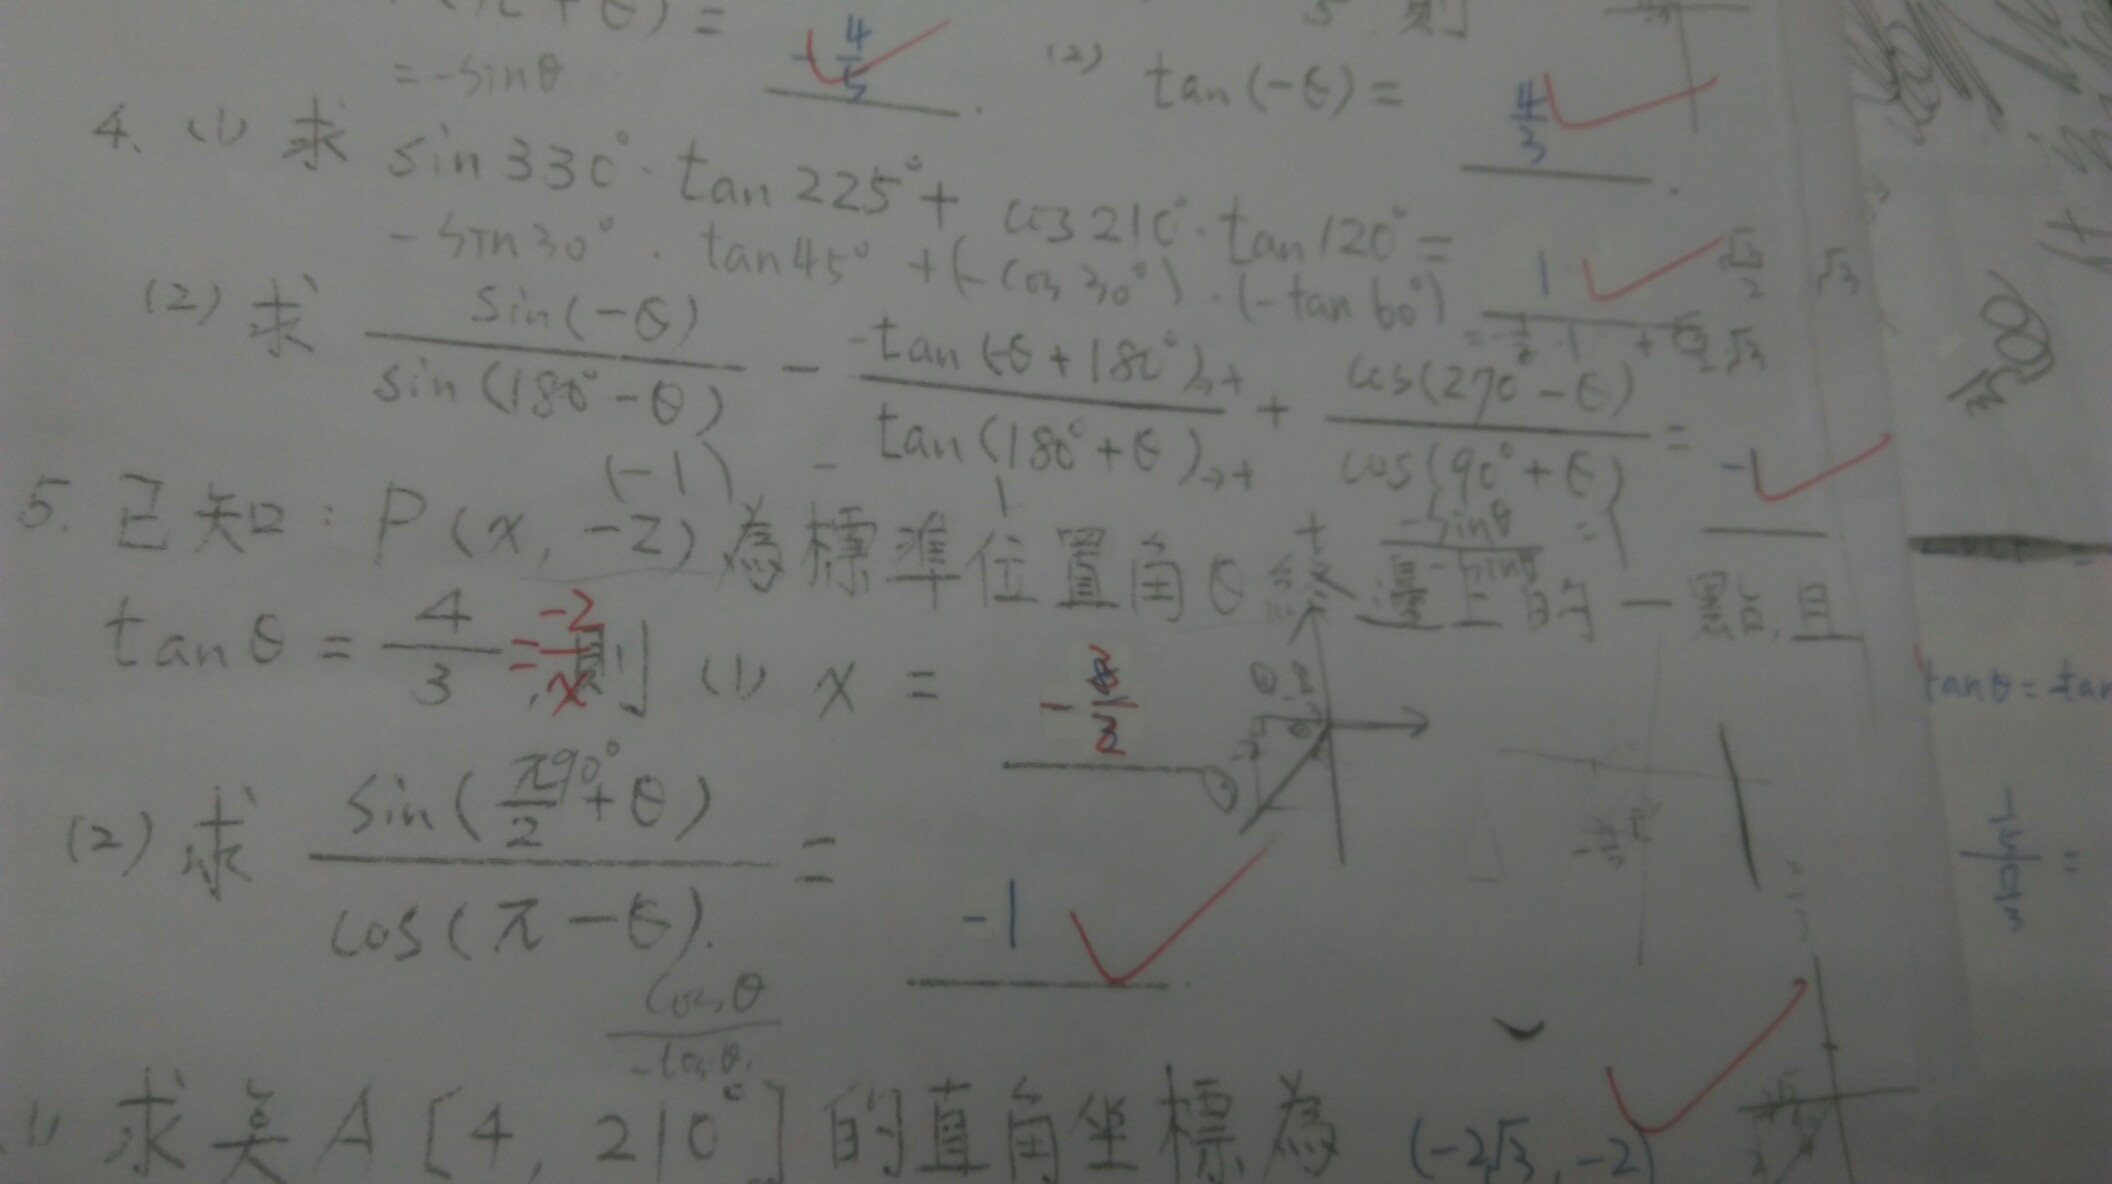 (π+θ)=
-4/5
5.則
=-sinθ
(2) tan(-θ)= 4/3
4. (1) 求 sin330°·tan225°+cos210°·tan120°= 1
-sin30°·tan45°+(-cos30°)·(-tan60°)
(2) 求 sin(-θ)/sin(180°-θ) - -tan(-θ+180°)→+/tan(180°+θ)→+ + cos(270°-θ)/cos(90°+θ) = -1
(-1) - 1 + -sinθ/-sinθ =
5. 已知:P(x,-2)為標準位置角θ終邊上的一點,且
tanθ=4/3=-2/x,則 (1) x= -3/2
(2) 求 sin(π/2 90°+θ)/cos(π-θ). = -1
cosθ/-cosθ
tanθ=-tan
(1) 求點A[4,210°]的直角坐標為 (-2√3,-2)